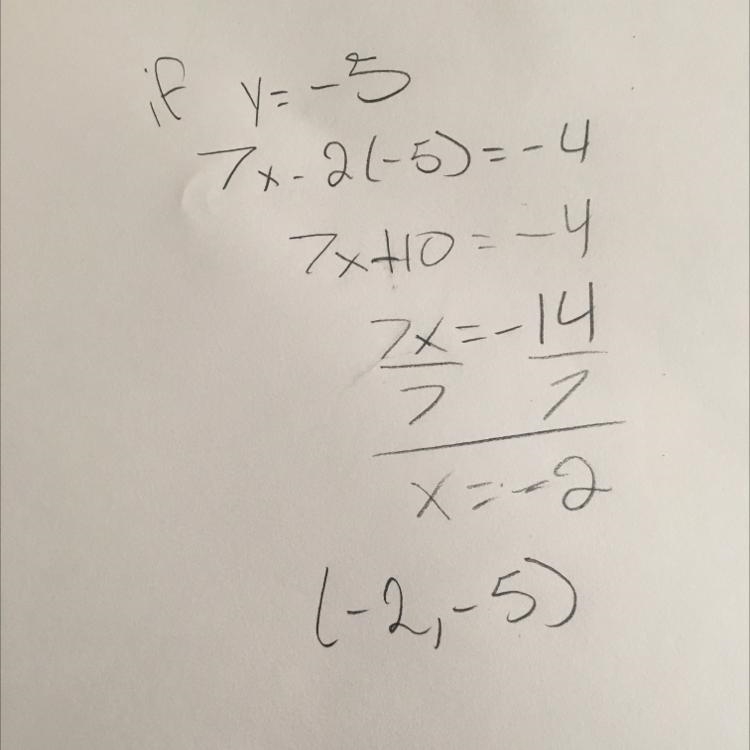 if y = -5
7x - 2(-5) = -4
7x + 10 = -4
7x = -14
7 7
x = -2
(-2, -5)